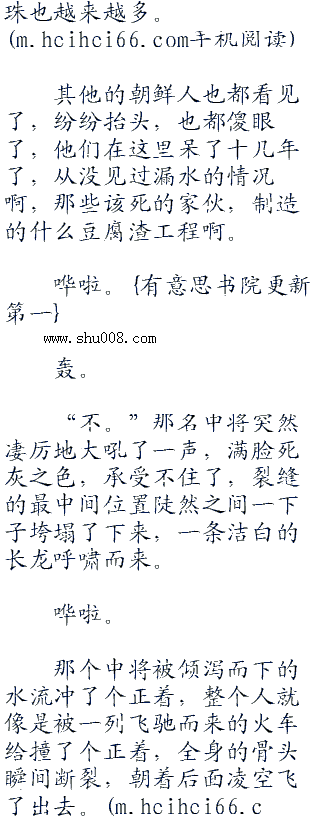 珠也越来越多。
(m.hcihci66.com手机阅读)
其他的朝鲜人也都看见
了，纷纷抬头，也都傻眼
了，他们在这里呆了十几年
了，从没见过漏水的情况
啊，那些该死的家伙，制造
的什么豆腐渣工程啊。
哗啦。{有意思书院更新
第一}
www.shu008.com
轰。
“不。”那名中将突然
凄厉地大吼了一声，满脸死
灰之色，承受不住了，裂缝
的最中间位置陡然之间一下
子垮塌了下来，一条洁白的
长龙呼啸而来。
哗啦。
那个中将被倾泻而下的
水流冲了个正着，整个人就
像是被一列飞驰而来的火车
给撞了个正着，全身的骨头
瞬间断裂，朝着后面凌空飞
了出去。(m.hcihci66.c